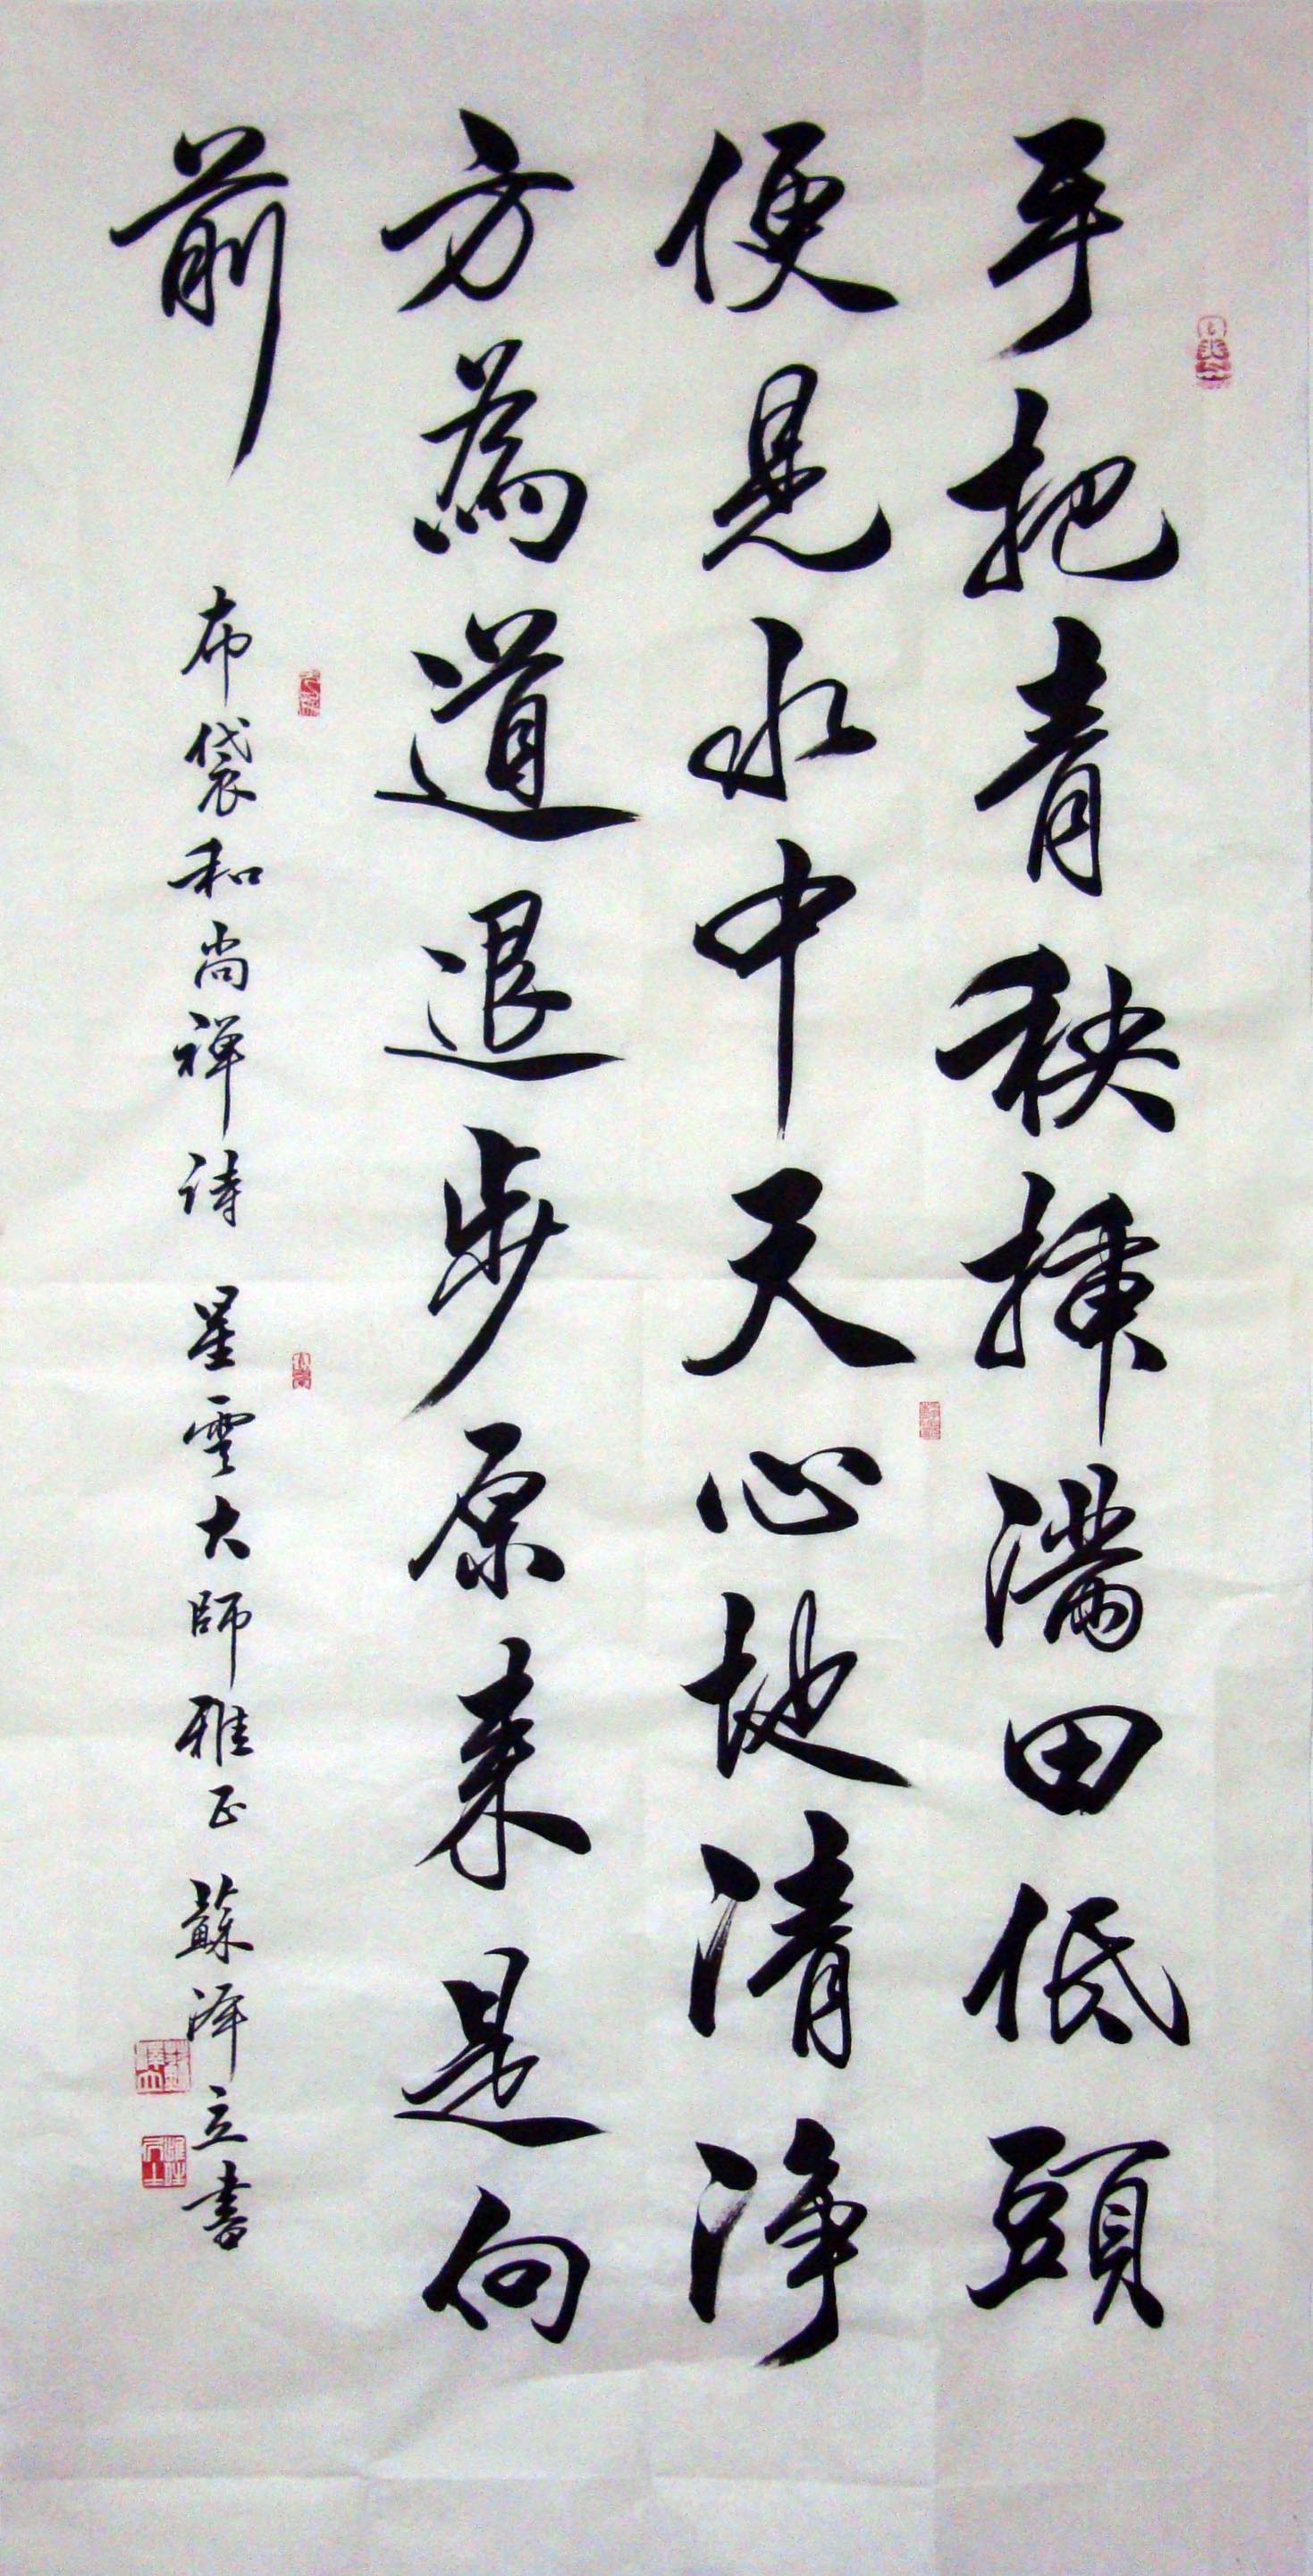 手把青秧插滿田低頭
便見水中天心地清淨
方為道退步原来是向
前
布袋和尚禅诗 星雲大師雅正 蘇泽立書